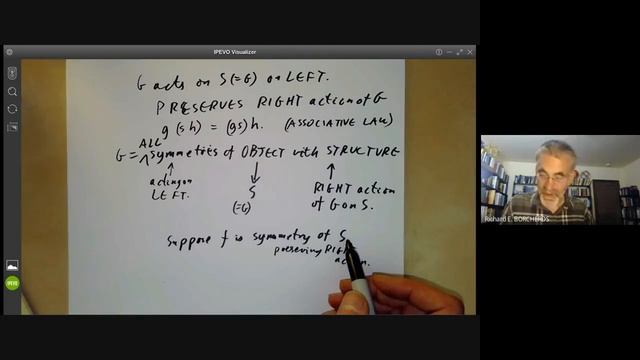 IPEVO Visualizer
G acts on S(=G) on LEFT.
PRESERVES RIGHT action of G
g(sh) = (gs)h. (ASSOCIATIVE LAW)
G = ALL symmetries of OBJECT with STRUCTURE
acting on LEFT.
S
(=G)
RIGHT action
of G on S.
Suppose f is symmetry of S
preserving RIGHT
action.
Richard E. BORCHERDS
IPEVO